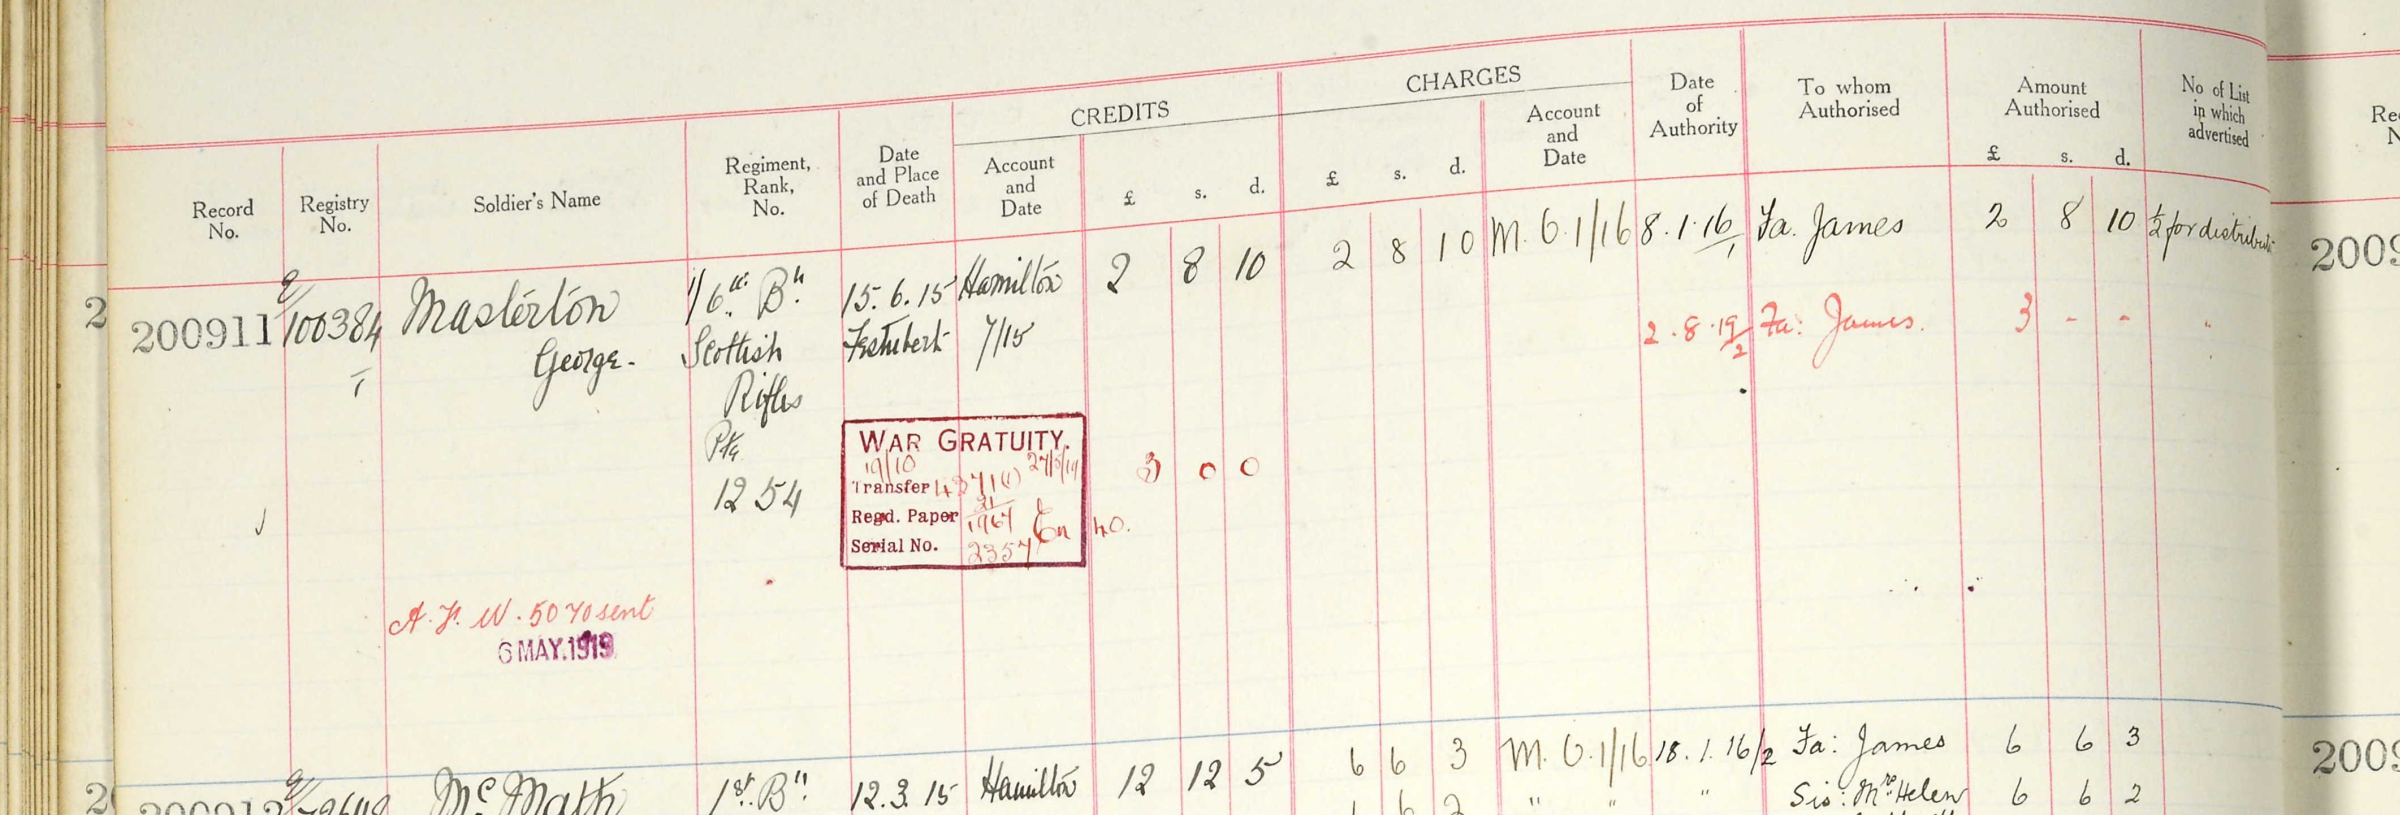 CREDITS
CHARGES
Record No.
Registry No.
Soldier's Name
Regiment, Rank, No.
Date and Place of Death
Account and Date
£ s. d.
£ s. d.
Account and Date
Date of Authority
To whom Authorised
Amount Authorised
£ s. d.
No of List in which advertised
200911 E/100384 Masterton 1/6th Bn 15.6.15 Hamilton 2 8 10 2 8 10 M.O.1/16 8.1.16/1 Fa. James 2 8 10 ½ for distributi
George. Scottish Festubert 7/15 2.8.19/2 Fa: James. 3 - -
1 Rifles
Pte
1254
WAR GRATUITY.
19/10
Transfer 4371(1)
3 0 0
Regd. Paper 21/1964
Serial No. 2357
A.F.W. 5070 sent
6 MAY.1919
Mc Math 1st Bn 12.3.15 Hamilton 12 12 5 6 6 3 M.O.1/16 18.1.16/2 Fa: James 6 6 3
6 2 " " " Sis: Mrs Helen 6 6 2
2009
2009